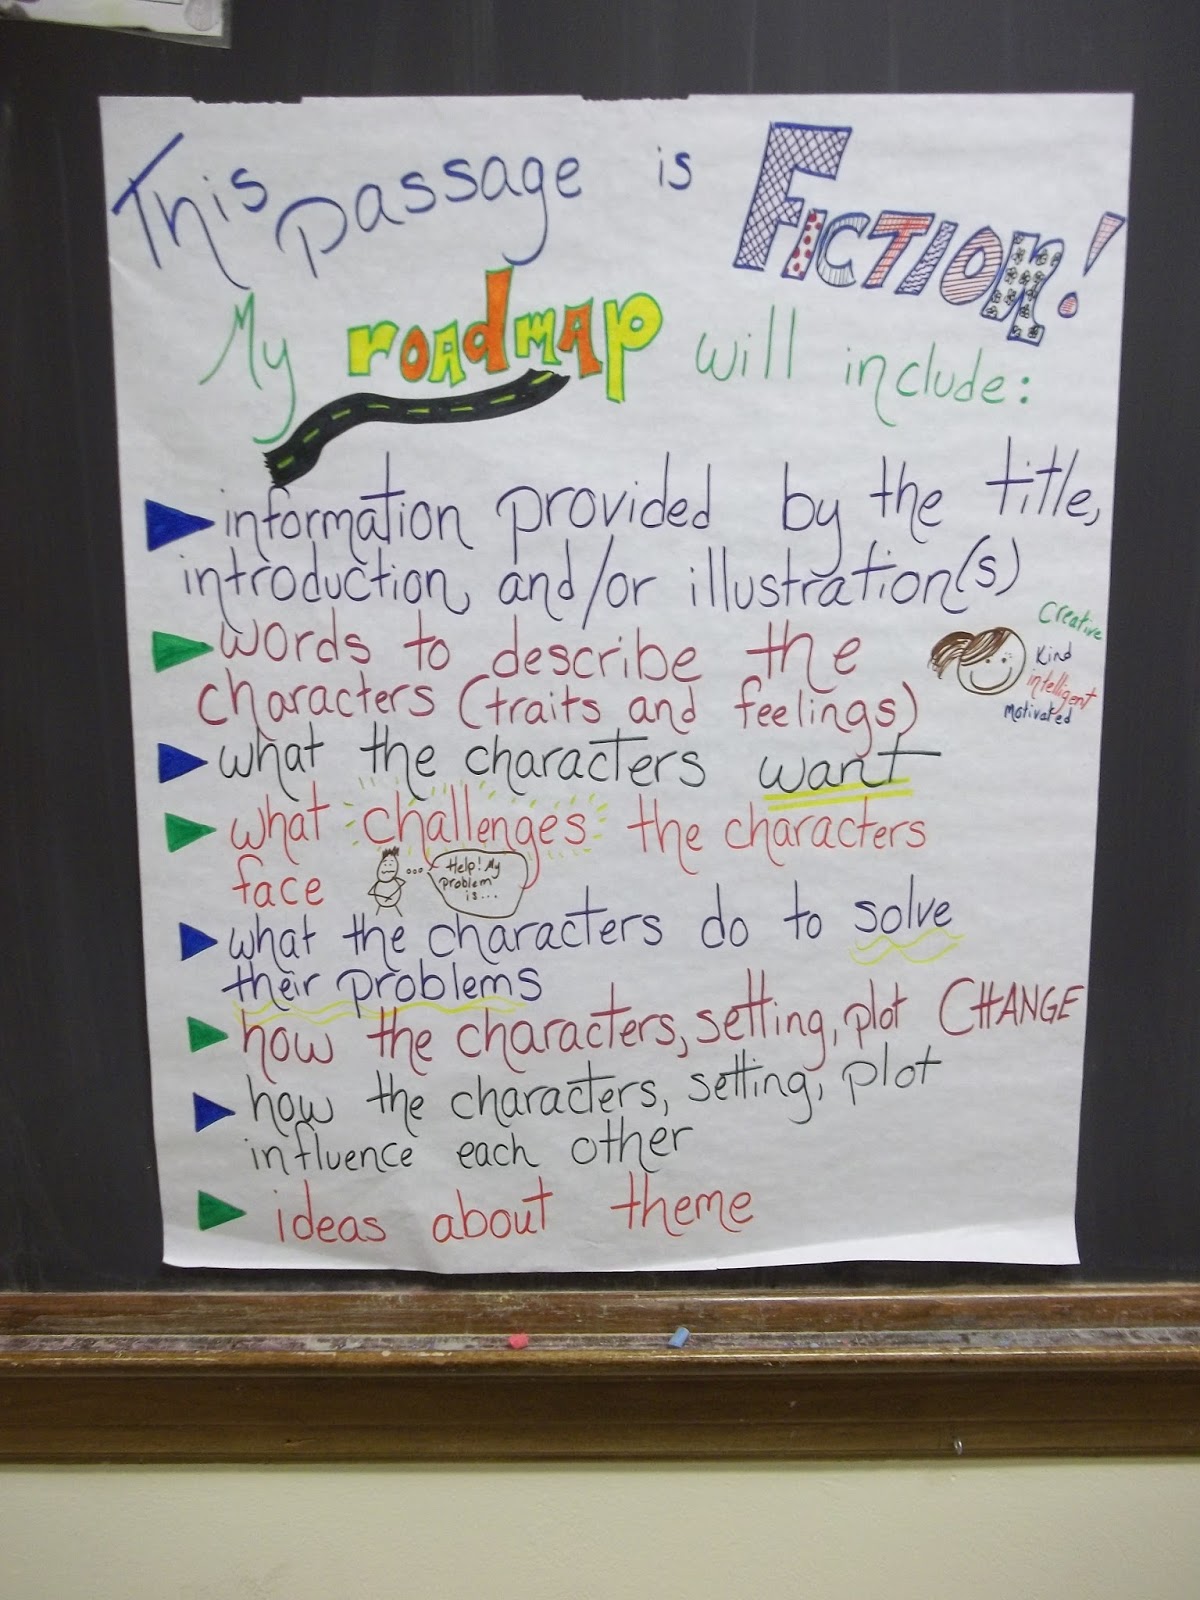 This passage is FICTION!
My roadmap will include:
information provided by the title,
introduction, and/or illustration(s)
words to describe the
characters (traits and feelings)
Creative
Kind
intelligent
motivated
what the characters want
what challenges the characters
face
... Help! My
problem
is...
what the characters do to solve
their problems
how the characters, setting, plot CHANGE
how the characters, setting, plot
influence each other
ideas about theme